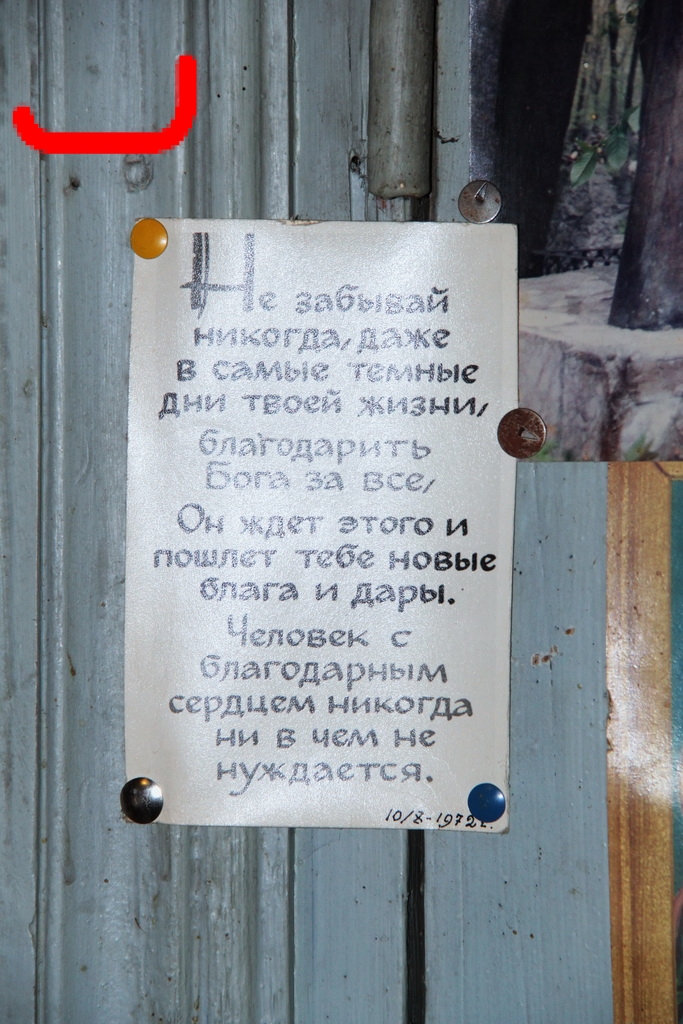 Не забывай
никогда, даже
в самые темные
дни твоей жизни,
благодарить
Бога за все,
Он ждет этого и
пошлет тебе новые
блага и дары.
Человек с
благодарным
сердцем никогда
ни в чем не
нуждается.
10/X-1972г.